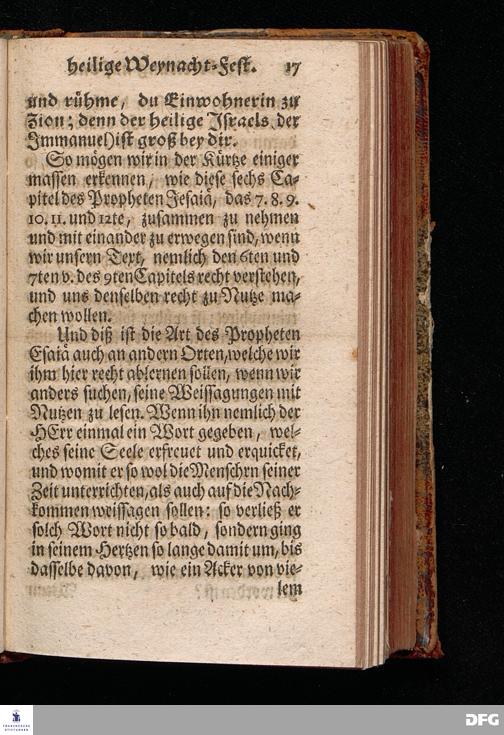 heilige Weynacht-Fest. 17
und rühme, du Einwohnerin zu
Zion; denn der heilige Israels der
Immanuel) ist groß bey dir.
So mögen wir in der Kürtze einiger
massen erkennen, wie diese sechs Ca-
pitel des Propheten Jesaiä, das 7. 8. 9.
10. 11. und 12te, zusammen zu nehmen
und mit einander zu erwegen sind, wenn
wir unsern Text, nemlich den 6ten und
7ten v. des 9ten Capitels recht verstehen,
und uns denselben recht zu Nutze ma-
chen wollen.
Und diß ist die Art des Propheten
Esaiä auch an andern Orten, welche wir
ihm hier recht ablernen sollen, wenn wir
anders suchen, seine Weissagungen mit
Nutzen zu lesen. Wenn ihn nemlich der
HErr einmal ein Wort gegeben, wel-
ches seine Seele erfreuet und erquicket,
und womit er so wol die Menschrn seiner
Zeit unterrichten, als auch auf die Nach-
kommen weissagen sollen: so verließ er
solch Wort nicht so bald, sondern ging
in seinem Hertzen so lange damit um, bis
dasselbe davon, wie ein Acker von vie-
lem
FRANCKESCHE
STIFTUNGEN
DFG